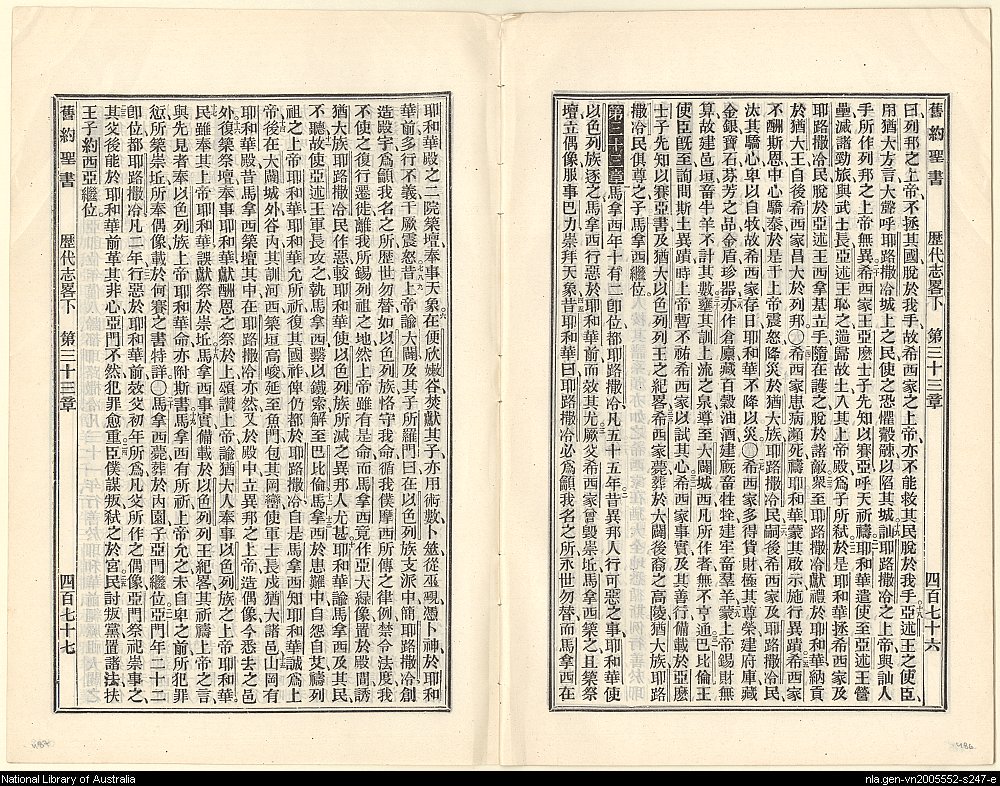 舊約聖書　歷代志畧下　第三十三章　四百七十六
曰列邦之上帝不拯其國脫於我手故希西家之上帝亦不能救其民脫於我手亞述王之使臣
用猶大方言大聲呼耶路撒冷城上之民使之恐懼觳觫以陷其城訕耶路撒冷之上帝與訕人
手所作列邦之上帝無異希西家王亞麼士子先知以賽亞呼天祈禱耶和華遣使至亞述王營
壘滅諸勁旅與武士長亞述王恥之遄歸故土入其上帝殿爲子所弒於是耶和華拯希西家及
耶路撒冷民脫於亞述王西拿基立手隨在護之脫於諸敵衆至耶路撒冷獻禮於耶和華納貢
於猶大王自後希西家昌大於列邦〇希西家患病瀕死禱耶和華蒙其啟示施行異蹟希西家
不酬斯恩中心驕泰於是干上帝震怒降災於猶大族耶路撒冷民嗣後希西家及耶路撒冷民
汰其驕心卑以自牧故希西家存日耶和華不降以災〇希西家多得貨財極其尊榮建府庫藏
金銀寶石芬芳之品金盾珍器亦作倉廩藏百穀油酒建廐畜牲牷建牢畜羣羊蒙上帝錫財無
算故建邑垣畜牛羊不計其數壅其訓上流之泉導至大闢城西凡所作者無不亨通巴比倫王
使臣旣至詢問斯土異蹟時上帝暫不祐希西家以試其心希西家事實及其善行備載於亞麼
士子先知以賽亞書及猶大以色列列王之紀畧希西家薨葬於大闢裔之高陵猶大大族耶路
撒冷民俱尊之子馬拿西繼位
第三十三章馬拿西年十有二卽位都耶路撒冷凡五十五年昔異邦人行可惡之事耶和華使
以色列族逐之馬拿西行惡於耶和華前而效其尤厥父希西家曾毀崇坵馬拿西築之且築祭
壇立偶像服事巴力崇拜天象昔耶和華曰耶路撒冷必爲籲我名之所永世勿替而馬拿西在
耶和華殿之二院築壇奉事天象在便欣嫩谷焚獻其子亦用術數卜筮從巫覡憑卜神於耶和
華前多行不義干厥震怒昔上帝諭大闢及其子所羅門曰在以色列族支派中簡耶路撒冷創
造殿宇爲籲我名之所歷世勿替如以色列族恪守我命循我僕摩西所傳之律例禁令法度我
不使之復行遷徙離我所錫列祖之地然上帝雖有是命而馬拿西竟作亞大綠像置於殿間誘
猶大族耶路撒冷民作惡較耶和華使以色列族所滅之異邦人尤甚耶和華諭馬拿西及其民
不聽故使亞述王軍長攻之執馬拿西罄以鐵索解至巴比倫馬拿西於患難中自怨自艾禱列
祖之上帝耶和華耶和華允所祈復其國祚俾仍都於耶路撒冷自是馬拿西知耶和華誠爲上
帝後在大闢城外谷內其訓河西築垣高峻延至魚門包其岡巒使軍士長戍猶大諸邑山岡有
耶和華殿昔馬拿西築壇其中在耶路撒冷亦然又於殿中立異邦之上帝造偶像今悉去之邑
外復築祭壇奉事耶和華獻酬恩之祭於上頌讚上帝諭猶大人奉事以色列族之上帝耶和華
民雖奉其上帝耶和華誤獻祭於崇坵馬拿西事實備載於以色列列王紀畧其祈禱上帝之言
與先見者奉以色列族上帝耶和華命亦附斯書馬拿西有所祈上帝允之未自卑之前所犯罪
愆所築崇坵所奉偶像載於何賽之書特詳〇馬拿西薨葬於內園子亞門繼位亞門年二十二
卽位都耶路撒冷凡二年行惡於耶和華前效父初年所爲凡父所作之偶像亞門祭祀崇事之
其父後能於耶和華前革其非心亞門不然犯罪愈重臣僕謀叛弒之於宮民討叛黨置諸法扶
王子約西亞繼位
舊約聖書　歷代志畧下　第三十三章　四百七十七
486
487
National Library of Australia
nla.gen-vn2005552-s247-e